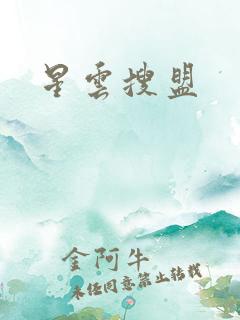 星雲搜盟
金阿牛
未经同意禁止转载